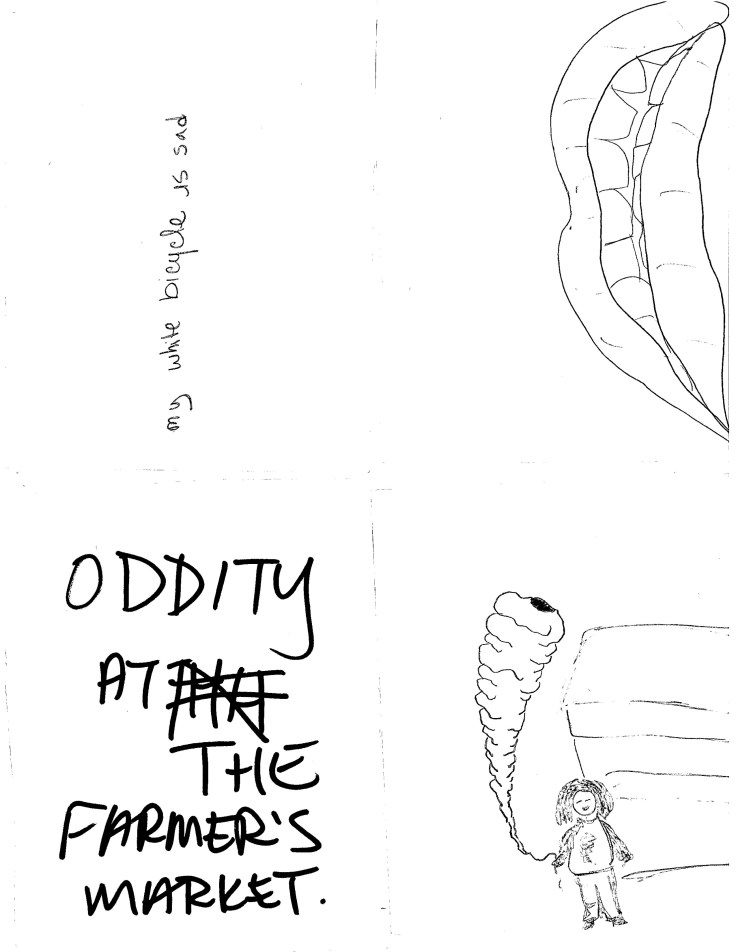 my white bicycle is sad
ODDITY
AT
THE
FARMER'S
MARKET.